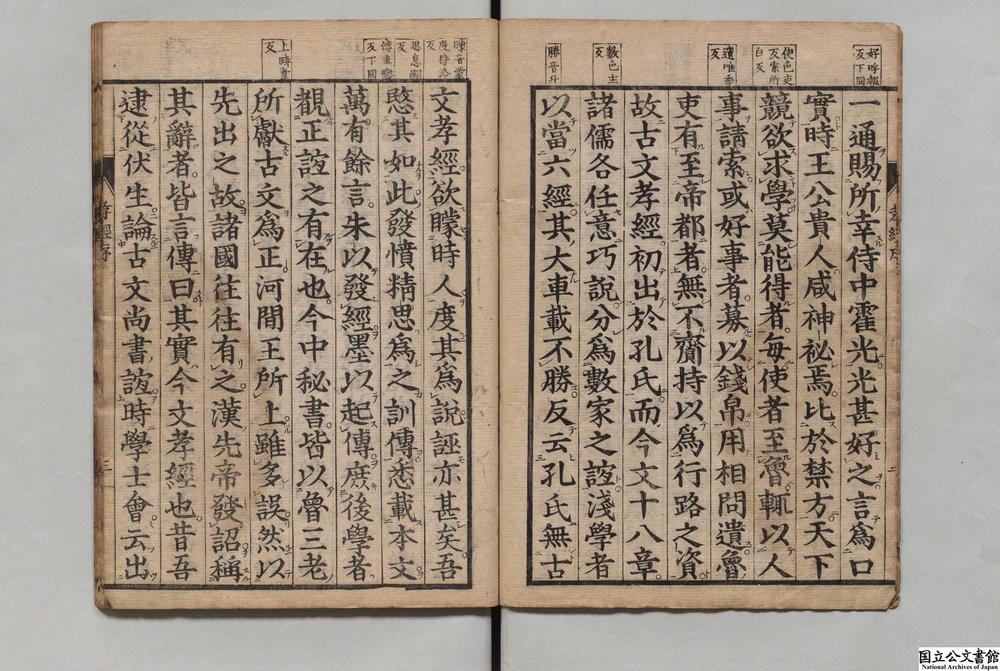 好呼報
反下同
使色吏
反索所
白反
遺唯季
反
數色主
反
勝音升
一通賜所幸侍中霍光光甚好之言爲口
實時王公貴人咸神祕焉比於禁方天下
競欲求學莫能得者每使者至魯輒以人
事請索或好事者募以錢帛用相問遺魯
吏有至帝都者無不齎持以爲行路之資
故古文孝經初出於孔氏而今文十八章
諸儒各任意巧說分爲數家之誼淺學者
以當六經其大車載不勝反云孔氏無古
矇音蒙
度待洛
反
思息嗣
反
傳直戀
反下同
上時掌
反
文孝經欲矇時人度其爲說誣亦甚矣吾
愍其如此發憤精思爲之訓傳悉載本文
萬有餘言朱以發經墨以起傳庶後學者
觀正誼之有在也今中秘書皆以魯三老
所獻古文爲正河間王所上雖多誤然以
先出之故諸國往往有之漢先帝發詔稱
其辭者皆言傳曰其實今文孝經也昔吾
逮從伏生論古文尚書誼時學士會云出
孝經序
三
国立公文書館
National Archives of Japan